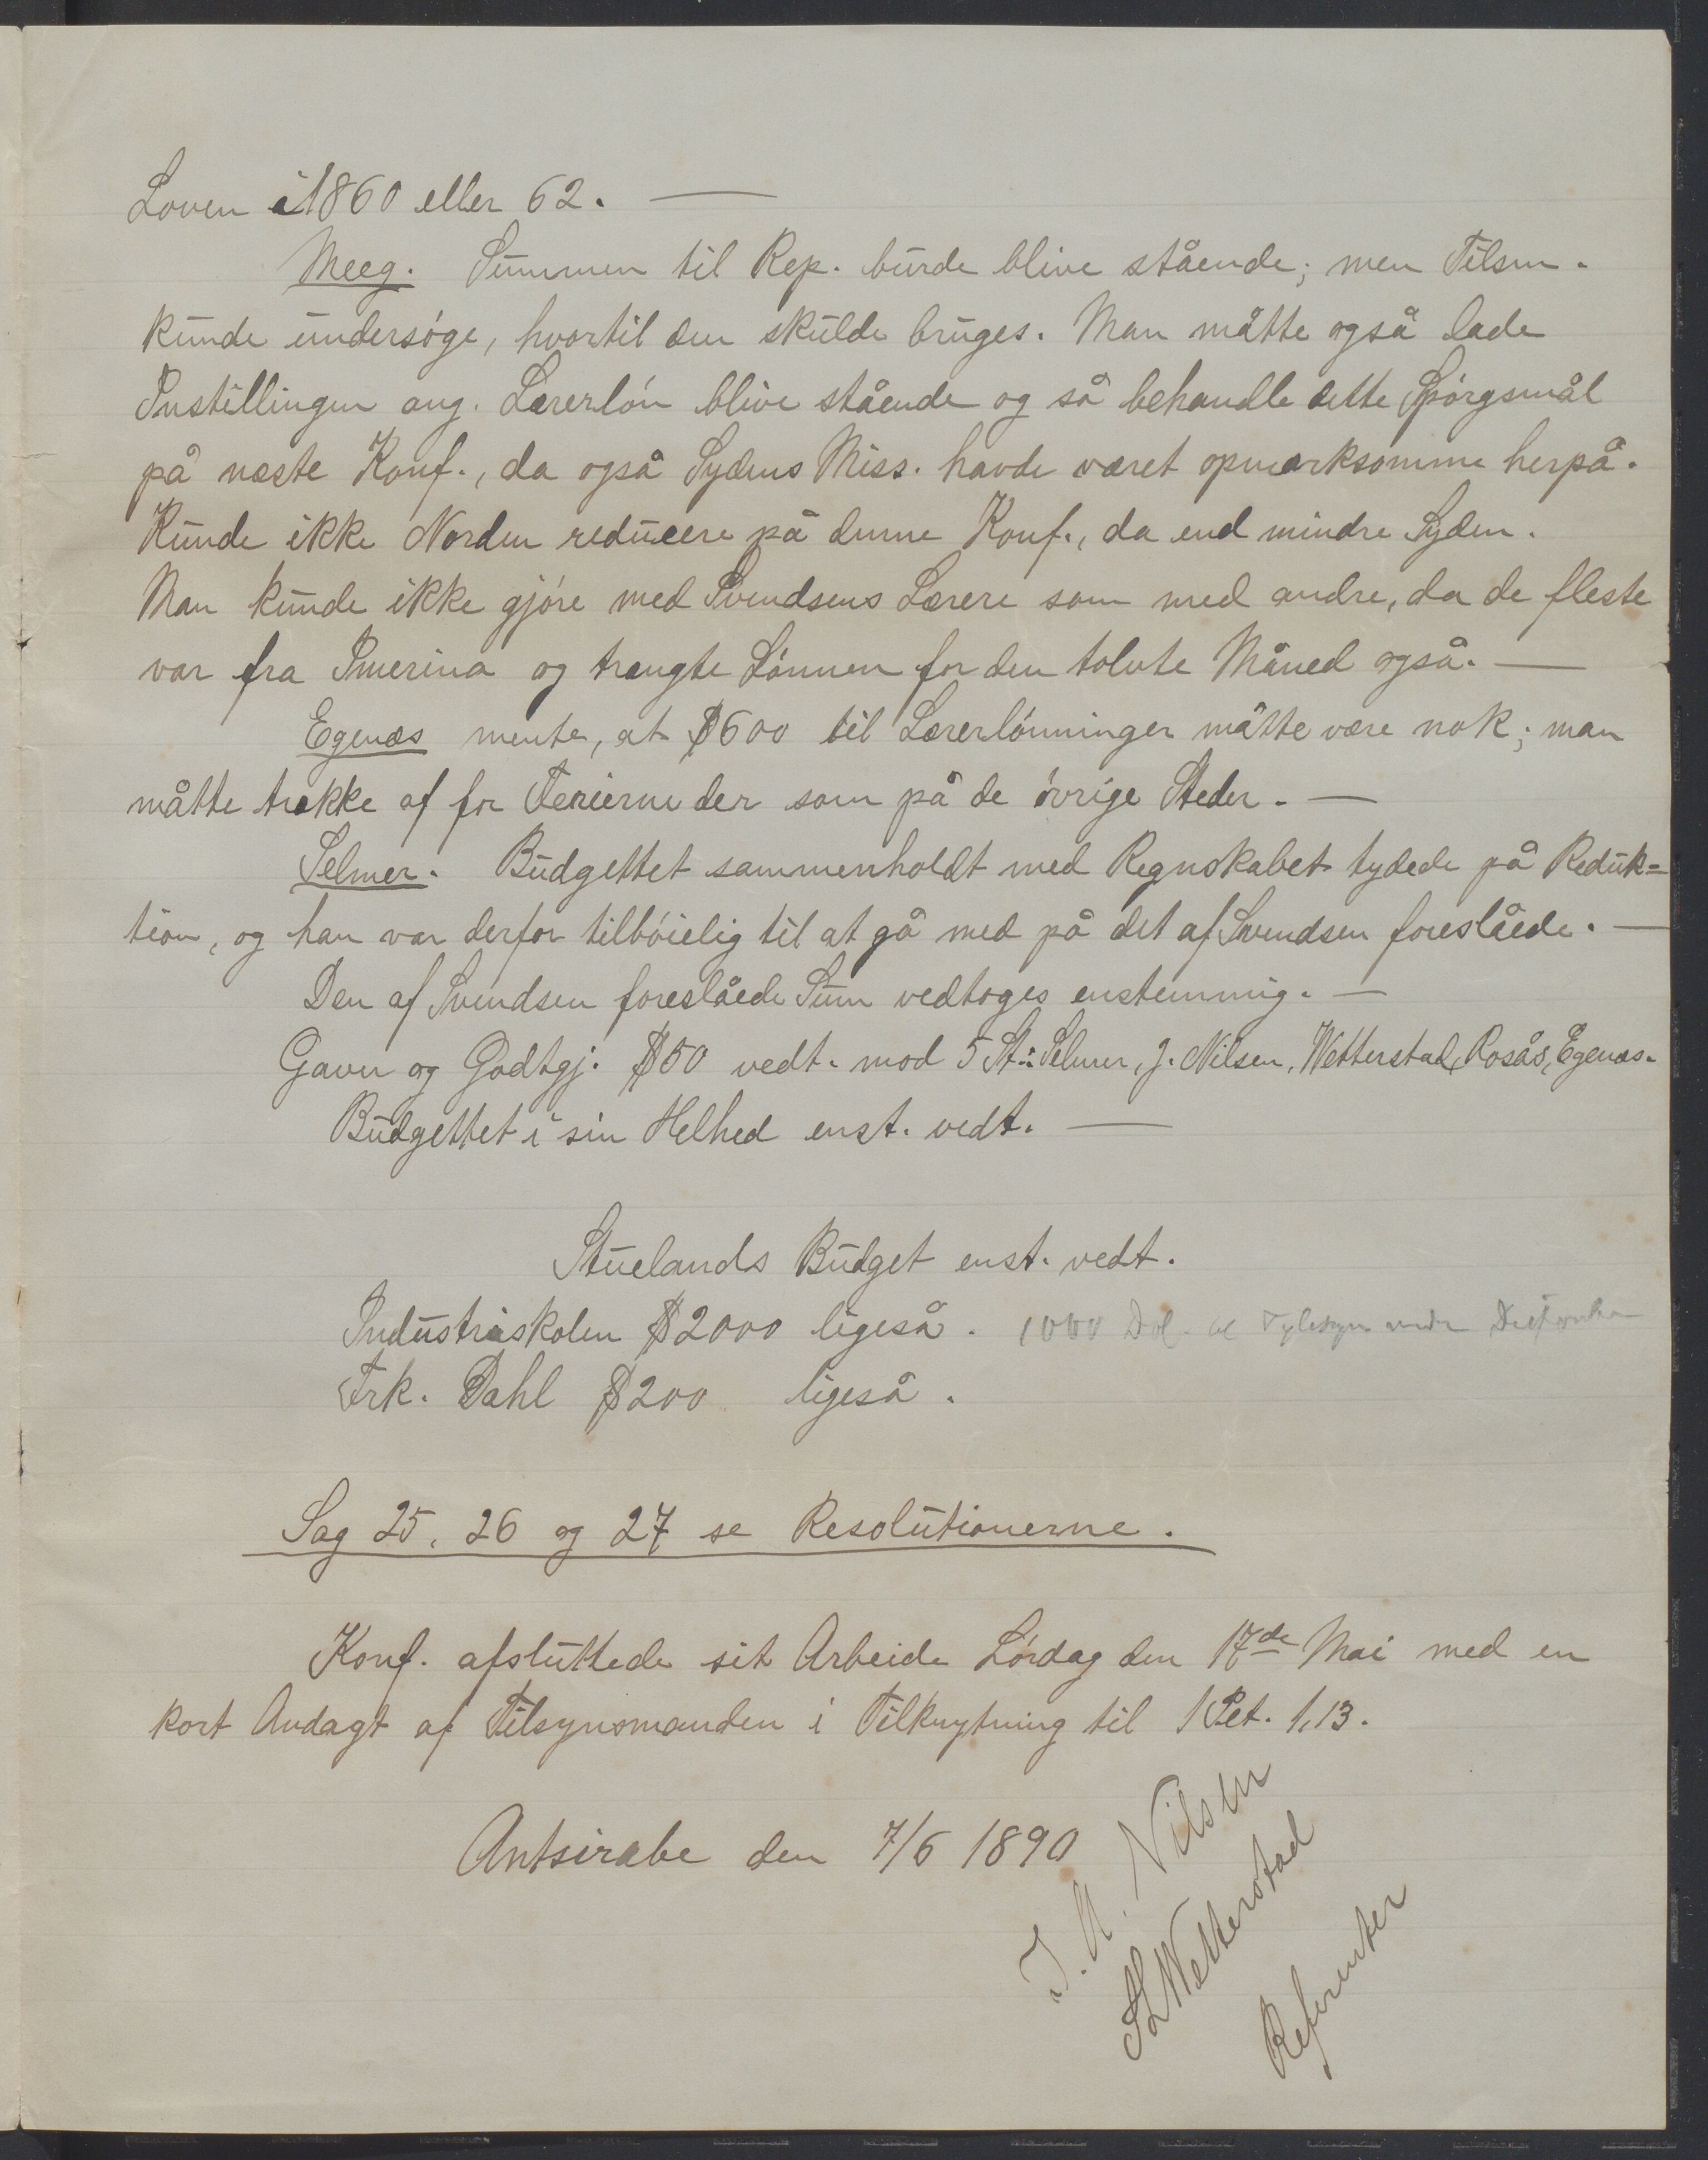 Loven i 1860 eller 62. —
Meeg. Summen til Rep. burde blive stående; men Tilsm.
kunde undersøge, hvortil den skulde bruges. Man måtte også lade
Instillingen ang. Lærerløn blive stående og så behandle dette Spørgsmål
på næste Konf., da også Sydens Miss. havde været opmærksomme herpå.
Kunde ikke Norden reducere på denne Konf., da end mindre Syden.
Man kunde ikke gjøre med Svendsens Lærere som med andre, da de fleste
var fra Imerina og trængte Lønnen for den tolvte Måned også. —
Egenæs mente, at $600 til Lærerlønninger måtte være nok; man
måtte trække af for Ferierne der som på de øvrige Steder. —
Selmer. Budgettet sammenholdt med Regnskabet tydede på Reduk=
tion, og han var derfor tilbøielig til at gå med på det af Svendsen foreslåede. —
Den af Svendsen foreslåede Sum vedtoges enstemmig. —
Gaver og Godtgj. $50 vedt. mod 5 St.: Selmer, J. Nilsen, Wetterstad, Rosås, Egenæs.
Budgettet i sin Helhed enst. vedt. —
Stuelands Budget enst. vedt.
Industriskolen $2000 ligeså. 1000 Dol.
Frk. Dahl $200 ligeså.
Sag 25, 26 og 27 se Resolutionerne.
Konf. afsluttede sit Arbeide Lørdag den 17de Mai med en
kort Andagt af Tilsynsmanden i Tilknytning til 1 Pet. 1,13.
Antsirabe den 7/6 1890
J. A. Nilsen
Wetterstad
Referenter